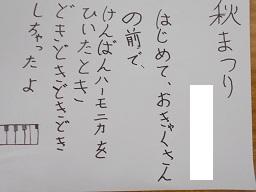 秋まつり
はじめて、おきゃくさん
の前で、
けんばんハーモニカを
ひいたとき
どきどきどきどき
しちゃったよ